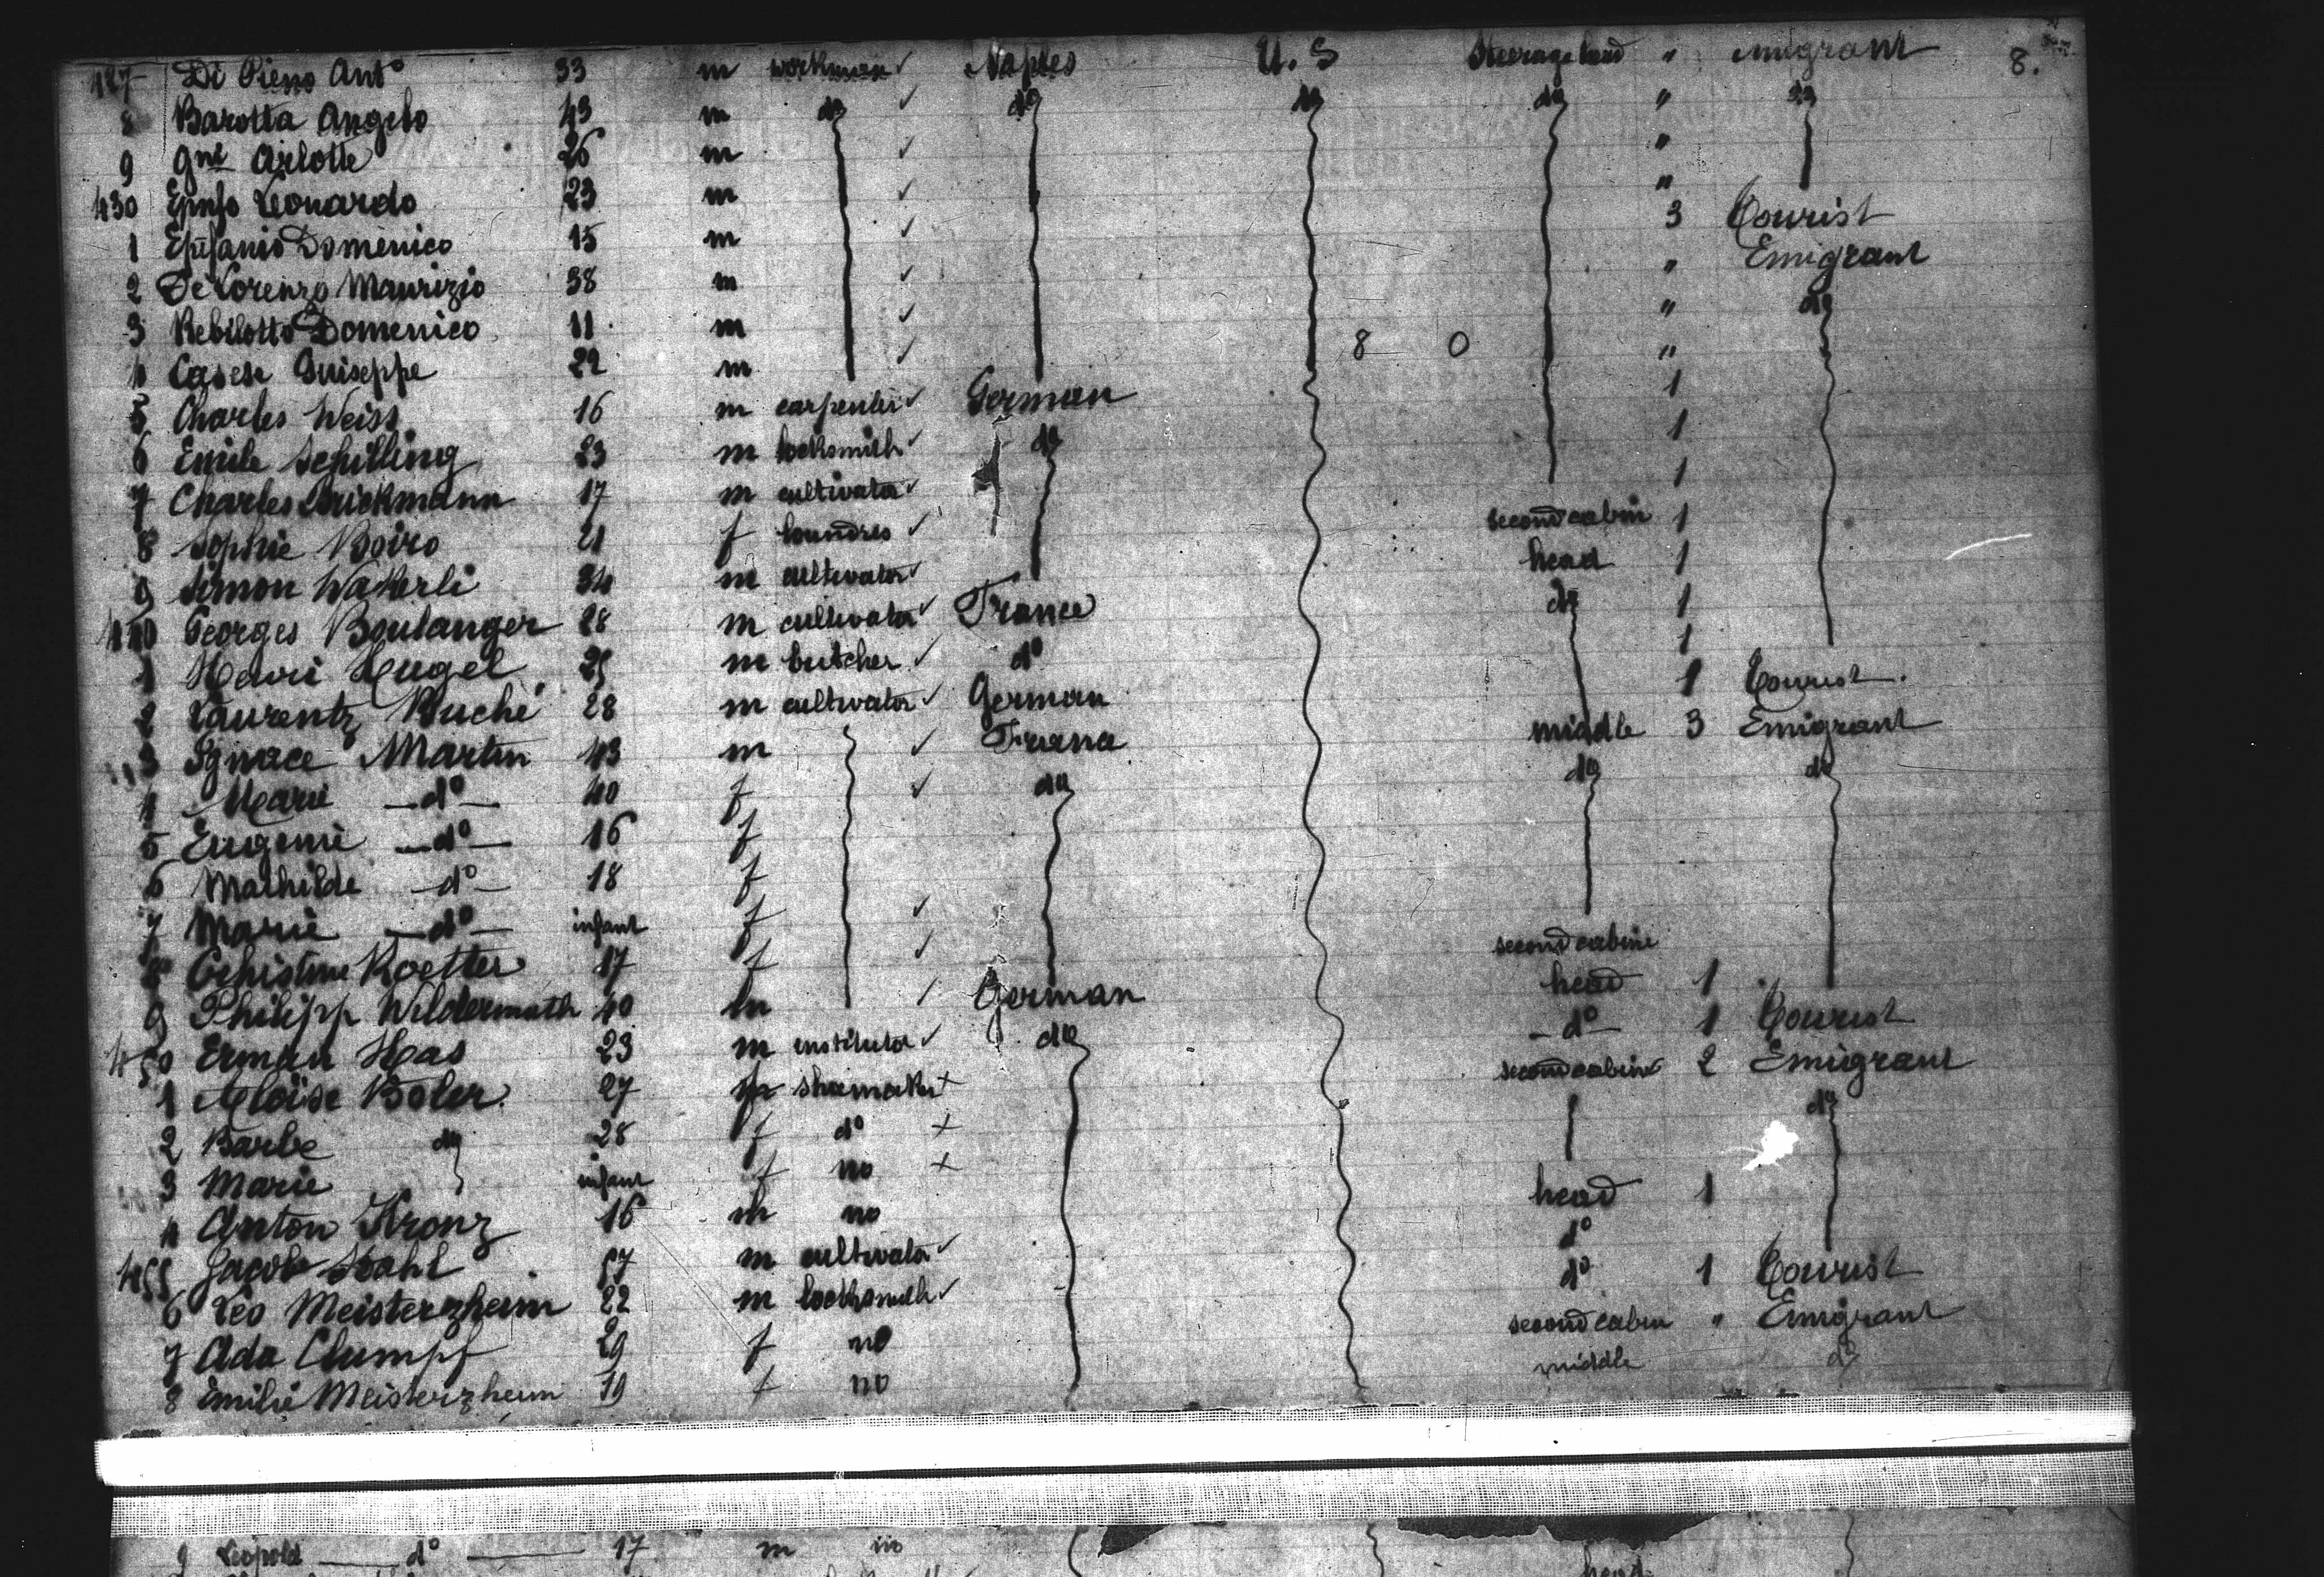 427 Di Pieno Ant° 33 m workman ✓ Naples U.S Steerage head " emigrant 8.
8 Barotta Angelo 43 m d° ✓ d° d° d° " d°
9 Gne Arlotte 26 m ✓ "
430 Leonardo 23 m ✓ "
1 Epifanio Domenico 15 m ✓ 3 Tourist
2 De Lorenzo Maurizio 38 m ✓ " Emigrant
3 Rebilotto Domenico 11 m ✓ " d°
4 Casese Guiseppe 22 m ✓ 8 0 "
5 Charles Weiss 16 m carpenter ✓ German 1
6 Emile Schilling 23 m locksmith ✓ d° 1
7 Charles Brickmann 17 m cultivator ✓ 1
8 Sophie Boiro 21 f loundres ✓ second cabin 1
9 Simon Watterli 34 m cultivator ✓ head 1
440 Georges Boulanger 28 m cultivator ✓ France d° 1
1 Henri Hugel 25 m butcher ✓ d° 1
2 Laurentz Buché 28 m cultivator ✓ German 1 Tourist
3 Ignace Martin 43 m ✓ France middle 3 Emigrant
4 Marie d° 40 f ✓ d° d° d°
5 Eugenie d° 16 f
6 Mathilde d° 18 f
7 Marie d° infant f ✓
8 Christine Koetter 17 f ✓ second cabine
9 Philipp Wildermuth 40 m ✓ German head 1
450 Erman Haas 23 m institutor ✓ d° d° 1 Tourist
1 Aloïse Boler 27 m shoemaker + second cabine 2 Emigrant
2 Barbe d° 28 f d° + d°
3 Marie infant f no +
4 Anton Kronz 16 m no head 1
455 Jacob Stahl 57 m cultivator ✓ d°
6 Leo Meisterzheim 22 m locksmith ✓ d° 1 Tourist
7 Ada Clumpf 29 f no second cabin " Emigrant
8 Emilie Meisterzheim 19 f no middle d°
9 Leopold d° 17 m no
head